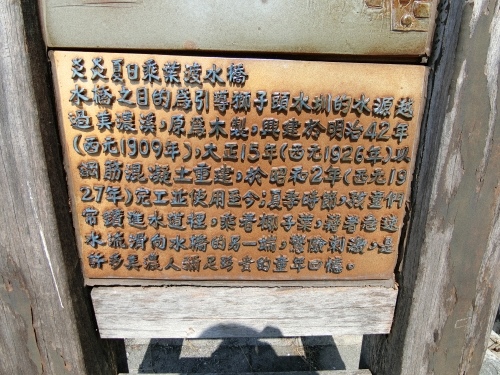 炙炙夏日乘葉渡水橋
水橋之目的為引導獅子頭水圳的水源越
過美濃溪，原為木製。興建於明治42年
(西元1909年)，大正15年(西元1926年)以
鋼筋混凝土重建，於昭和2年(西元19
27年)完工並使用至今；夏季時節，孩童們
常鑽進水道裡，乘著椰子葉，隨著急速
水流滑向水橋的另一端，驚險刺激，是
許多美濃人彌足珍貴的童年回憶。